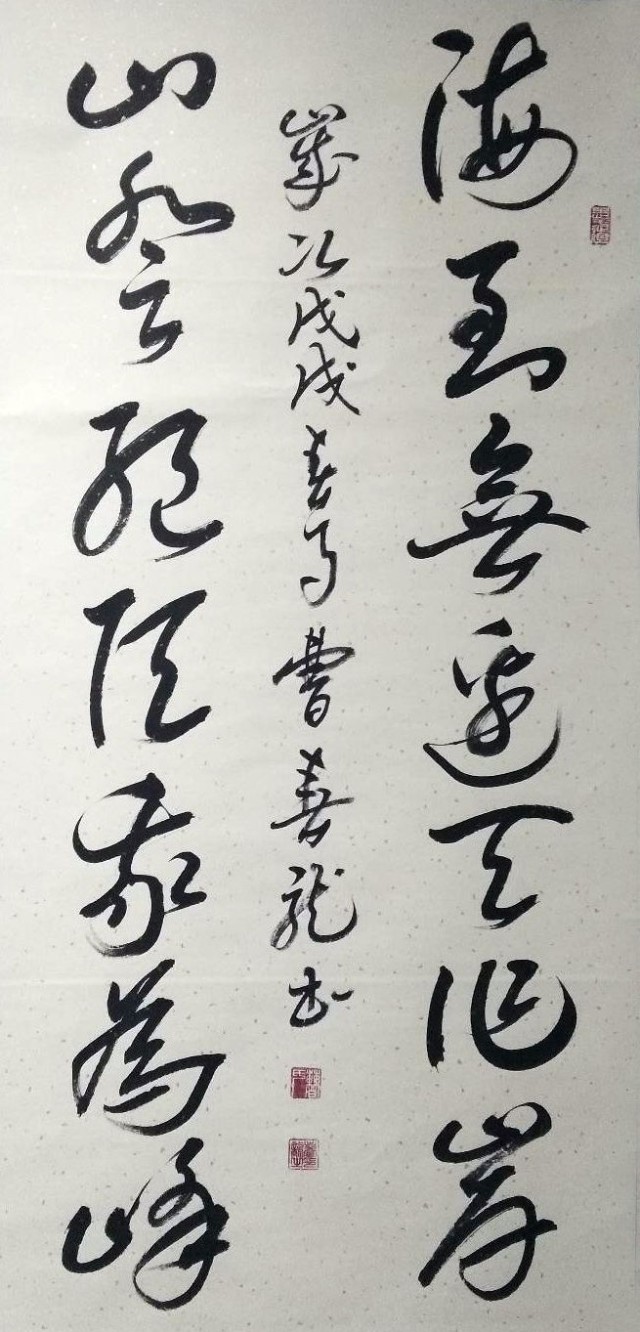 海到無邊天作岸
山登絕頂我為峰
歲次戊戌春月曹喜龍书